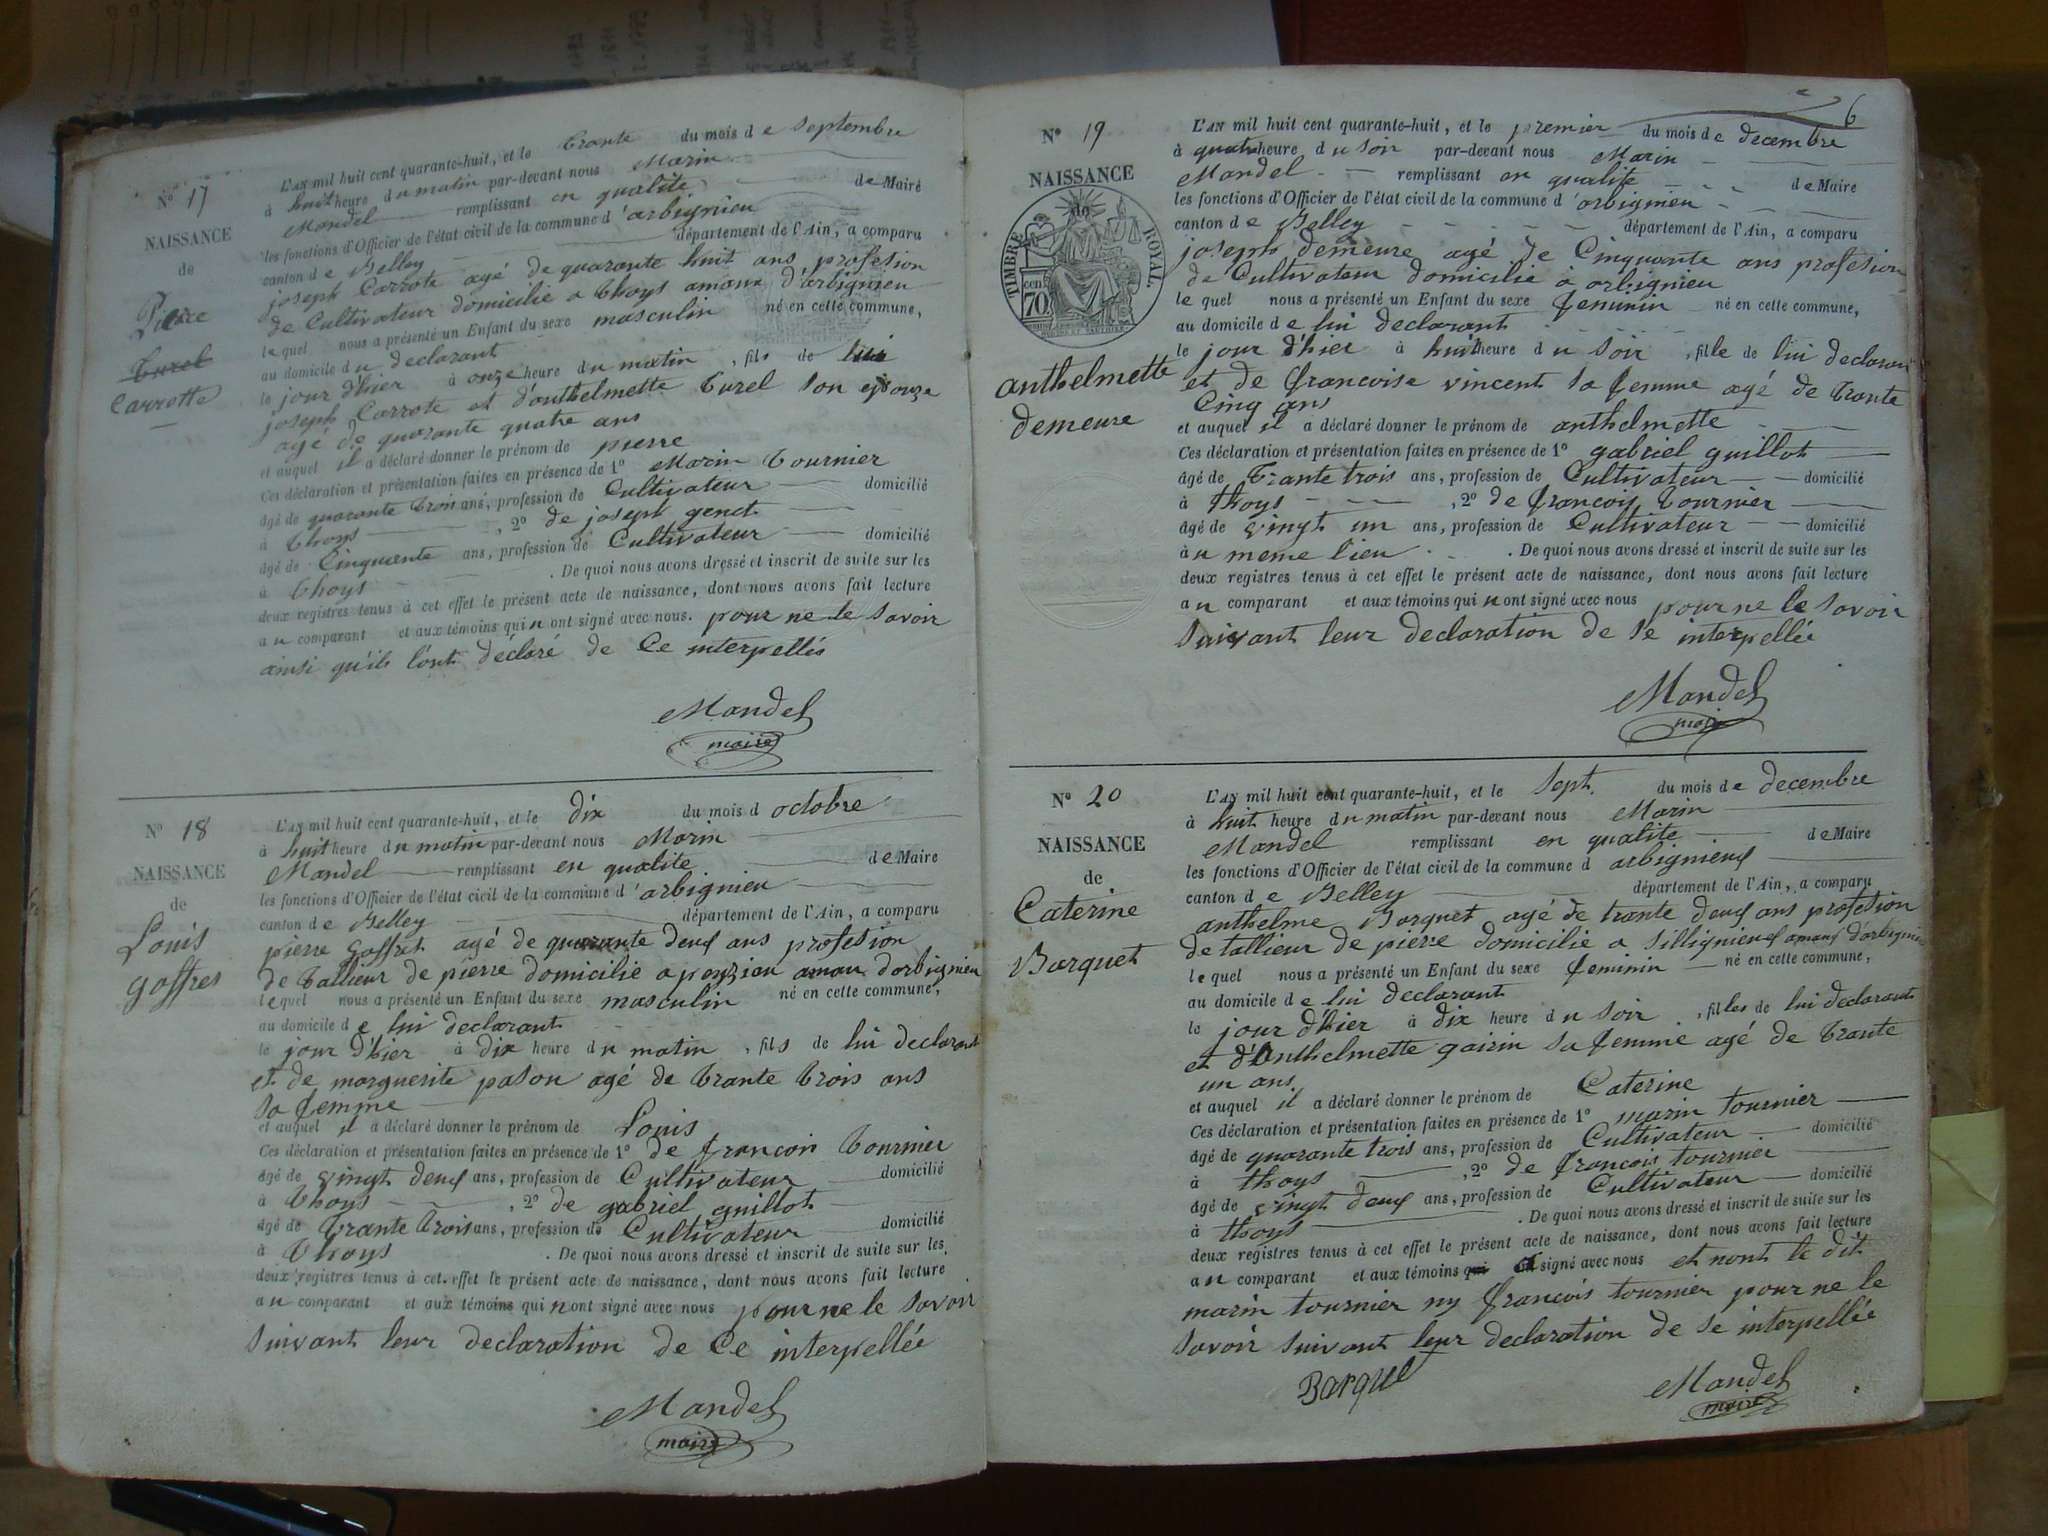 N° 17
NAISSANCE
de
Pierre
Turel
Carrette
L'AN mil huit cent quarante-huit, et le trante du mois de Septembre
à huit heure du matin par-devant nous Marin
Mandel remplissant en qualite de Maire
les fonctions d'Officier de l'état civil de la commune d'arbignieu
canton de Belley département de l'Ain, a comparu
joseph Carrote agé de quarante huit ans profesion
de Cultivateur domicilie a thoys amaux d'arbignieu
le quel nous a présenté un Enfant du sexe masculin né en cette commune,
au domicile du declarant
le jour d'hier à onze heure du matin, fils de lui
joseph Carrote et d'anthelmette turel son epouze
agé de quarante quatre ans
et auquel il a déclaré donner le prénom de pierre
Ces déclaration et présentation faites en présence de 1° Marin tournier
âgé de quarante trois ans, profession de Cultivateur domicilié
à thoys, 2° de joseph genet
âgé de Cinquente ans, profession de Cultivateur domicilié
à thoys. De quoi nous avons dressé et inscrit de suite sur les
deux registres tenus à cet effet le présent acte de naissance, dont nous avons fait lecture
au comparant et aux témoins qui n ont signé avec nous. pour ne le savoir
ainsi qu'ils l'ont déclaré de Ce interpellés
Mandel
maire
N° 18
NAISSANCE
de
Louis
goffres
L'AN mil huit cent quarante-huit, et le dix du mois d octobre
à huit heure du matin par-devant nous Marin
Mandel remplissant en qualite de Maire
les fonctions d'Officier de l'état civil de la commune d'arbignieu
canton de Belley département de l'Ain, a comparu
pierre goffres agé de quarante deux ans profesion
de tallieur de pierre domicilie a peyzieu amau d'arbignieu
le quel nous a présenté un Enfant du sexe masculin né en cette commune,
au domicile de lui declarant
le jour d'hier à dix heure du matin, fils de lui declarant
et de marguerite pason agé de trante trois ans
sa femme
et auquel il a déclaré donner le prénom de Louis
Ces déclaration et présentation faites en présence de 1° de francois tournier
âgé de vingt deux ans, profession de Cultivateur domicilié
à thoys, 2° de gabriel guillot
âgé de trante trois ans, profession de Cultivateur domicilié
à thoys. De quoi nous avons dressé et inscrit de suite sur les
deux registres tenus à cet effet le présent acte de naissance, dont nous avons fait lecture
au comparant et aux témoins qui n ont signé avec nous pour ne le savoir
suivant leur declaration de Ce interpellée
Mandel
maire
6
N° 19
NAISSANCE
de
TIMBRE ROYAL
70 cen
anthelmette
demeure
L'AN mil huit cent quarante-huit, et le premier du mois de decembre
à quatre heure du soir par-devant nous Marin
Mandel remplissant en qualite de Maire
les fonctions d'Officier de l'état civil de la commune d'arbignieu
canton de Belley département de l'Ain, a comparu
joseph demeure agé de Cinquante ans profesion
de Cultivateur domicilie à arbignieu
le quel nous a présenté un Enfant du sexe feminin né en cette commune,
au domicile de lui declarant
le jour d'hier à huit heure du soir, fille de lui declarant
et de francoise vincent sa femme agé de trante
Cinq ans
et auquel il a déclaré donner le prénom de anthelmette
Ces déclaration et présentation faites en présence de 1° gabriel guillot
âgé de trante trois ans, profession de Cultivateur domicilié
à thoys, 2° de francois tournier
âgé de vingt un ans, profession de Cultivateur domicilié
à u meme lieu. De quoi nous avons dressé et inscrit de suite sur les
deux registres tenus à cet effet le présent acte de naissance, dont nous avons fait lecture
au comparant et aux témoins qui n ont signé avec nous pour ne le savoir
suivant leur declaration de se interpellée
Mandel
maire
N° 20
NAISSANCE
de
Caterine
Barquet
L'AN mil huit cent quarante-huit, et le Sept. du mois de decembre
à huit heure du matin par-devant nous Marin
Mandel remplissant en qualite de Maire
les fonctions d'Officier de l'état civil de la commune d arbignieux
canton de Belley département de l'Ain, a comparu
anthelme Barquet agé de trante deux ans profesion
de tallieur de pierre domicilie a sillignieux amaux d'arbignieu
le quel nous a présenté un Enfant du sexe feminin né en cette commune,
au domicile de lui declarant
le jour d'hier à dix heure du soir, filles de lui declarant
et d'Anthelmette gairin sa femme agé de trante
un ans
et auquel il a déclaré donner le prénom de Caterine
Ces déclaration et présentation faites en présence de 1° marin tournier
âgé de quarante trois ans, profession de Cultivateur domicilié
à thoys, 2° de francois tournier
âgé de vingt deux ans, profession de Cultivateur domicilié
à thoys. De quoi nous avons dressé et inscrit de suite sur les
deux registres tenus à cet effet le présent acte de naissance, dont nous avons fait lecture
au comparant et aux témoins qui signé avec nous et nont le dit
marin tournier ny francois tournier pour ne le
savoir suivant leur declaration de se interpellée
Barquet
Mandel
maire